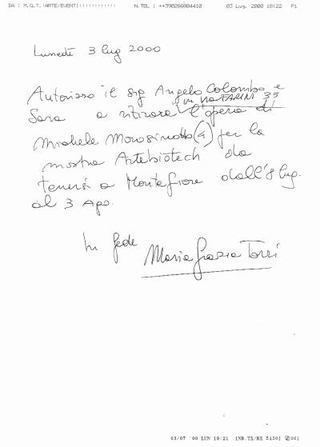 DA : M.G.T. (ARTE/EVENTI) N.TEL : ++390266804410 03 Lug. 2000 18:22 P1
Lunedì 3 lug 2000
Autorizzo il sig Angelo Colombo e
in via FARINI 35
Sara a ritirare l'opera di
Michele Morosinotto (4) per la
mostra Artebiotech da
tenersi a Montefiore dall'8 lug.
al 3 Ago.
In fede
Maria Grazia Torri
03/07 '00 LUN 18:21 [N. TX/RX 5430]